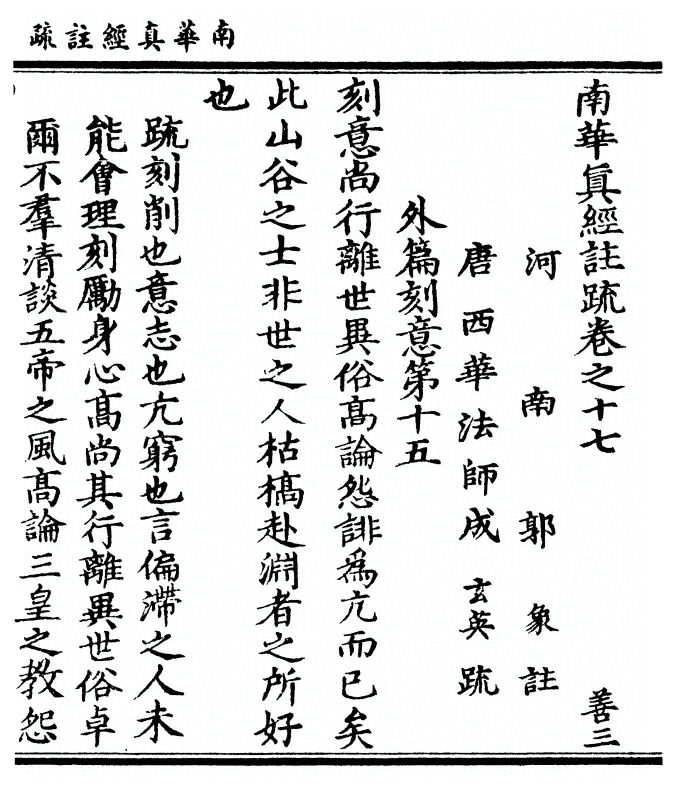 南華真經註疏
南華眞經註疏卷之十七 善三
河南郭象註
唐西華法師成玄英疏
外篇刻意第十五
刻意尚行離世異俗髙論怨誹爲亢而已矣
此山谷之士非世之人枯槁赴淵者之所好
也
疏刻削也意志也亢窮也言偏滯之人未
能會理刻勵身心髙尚其行離異世俗卓
爾不羣清談五帝之風髙論三皇之教怨